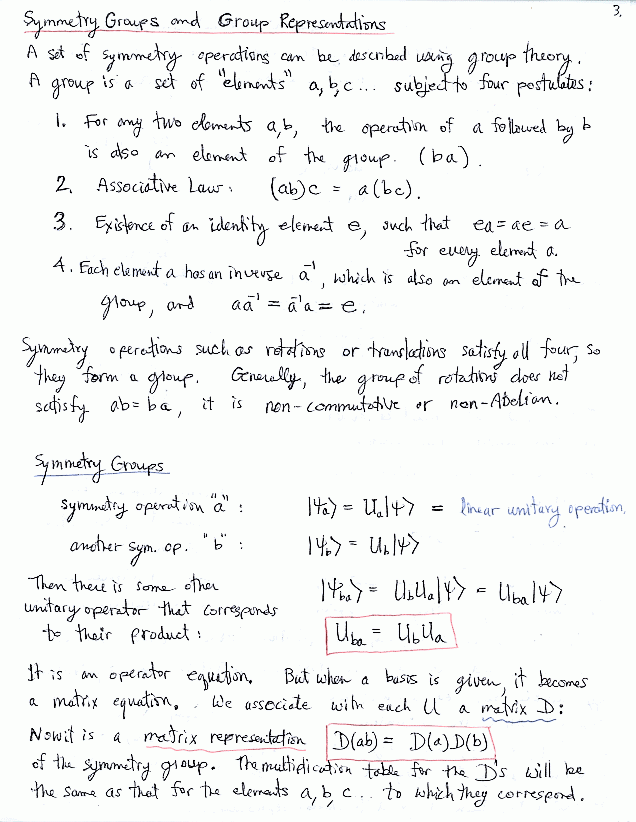 3.
Symmetry Groups and Group Representations
A set of symmetry operations can be described using group theory.
A group is a set of "elements" a, b, c ... subject to four postulates:
1. For any two elements a, b, the operation of a followed by b
is also an element of the group. (ba).
2. Associative Law: (ab)c = a(bc).
3. Existence of an identity element e, such that ea = ae = a
for every element a.
4. Each element a has an inverse a⁻¹, which is also an element of the
group, and aa⁻¹ = a⁻¹a = e.
Symmetry operations such as rotations or translations satisfy all four, so
they form a group. Generally, the group of rotations does not
satisfy ab = ba, it is non-commutative or non-Abelian.
Symmetry Groups
symmetry operation "a": |Ψa⟩ = Ua|Ψ⟩ = linear unitary operation.
another sym. op. "b": |Ψb⟩ = Ub|Ψ⟩
Then there is some other |Ψba⟩ = UbUa|Ψ⟩ = Uba|Ψ⟩
unitary operator that corresponds
to their product: Uba = UbUa
It is an operator equation. But when a basis is given, it becomes
a matrix equation. We associate with each U a matrix D:
Now it is a matrix representation D(ab) = D(a)D(b)
of the symmetry group. The multiplication table for the D's will be
the same as that for the elements a, b, c ... to which they correspond.